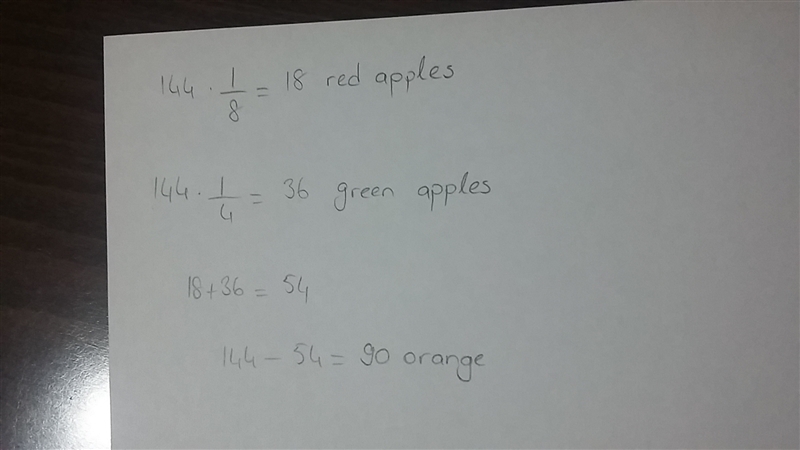 144 · 1/8 = 18 red apples
144 · 1/4 = 36 green apples
18+36 = 54
144 - 54 = 90 orange